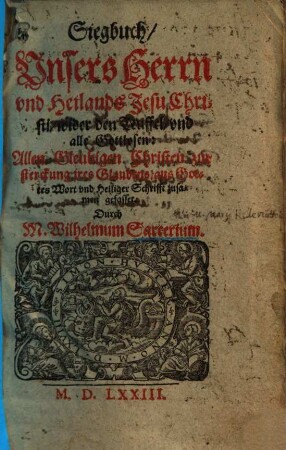 Siegbuch/
Vnsers Herrn
vnd Heilands Jesu Chri-
sti/ wider den Teuffel vnd
alle Gottlosen:
Allen Gleubigen Christen zur
sterckung ires Glaubens/ aus Got-
tes Wort vnd Heiliger Schrifft zusa-
men gefasset.
Durch
M. Wilhelmum Sarcerium.
M. D. LXXIII.